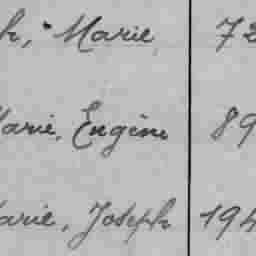 h, Marie 72
Marie, Engène 89
Marie, Joseph 194